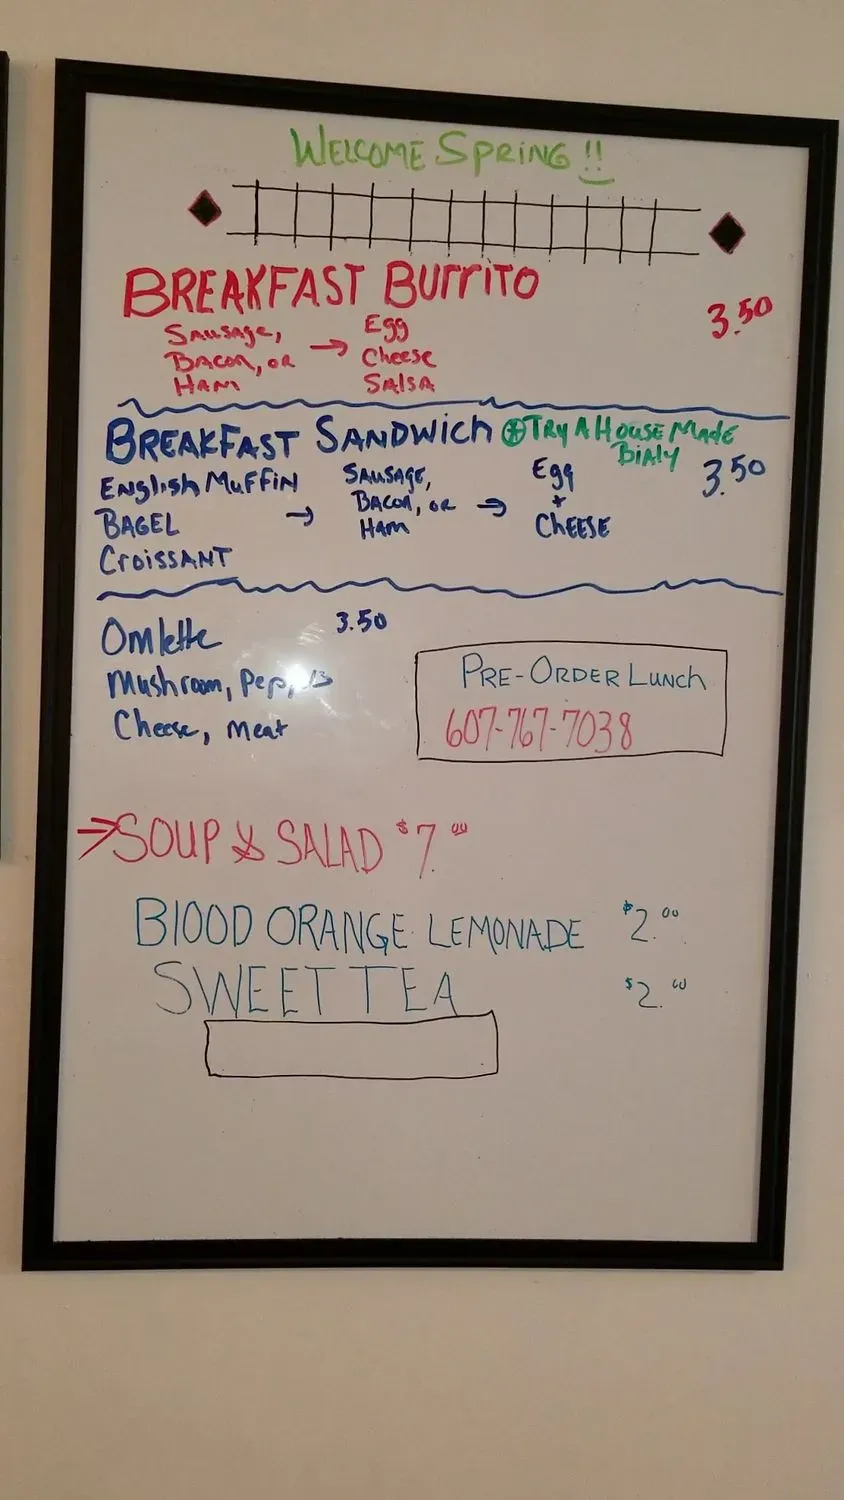 WELCOME SPRING!!
BREAKFAST BURRITO
3.50
Sausage, → Egg
Bacon, or Cheese
Ham Salsa
BREAKFAST SANDWICH ⊕ Try A House Made
Bialy
English Muffin → Sausage, → Egg 3.50
BAGEL Bacon, or +
Croissant Ham CHEESE
Omlette 3.50
Mushroom,
Cheese, Meat
PRE-ORDER LUNCH
607-767-7038
→ SOUP & SALAD $7.00
BLOOD ORANGE LEMONADE $2.00
SWEET TEA $2.00